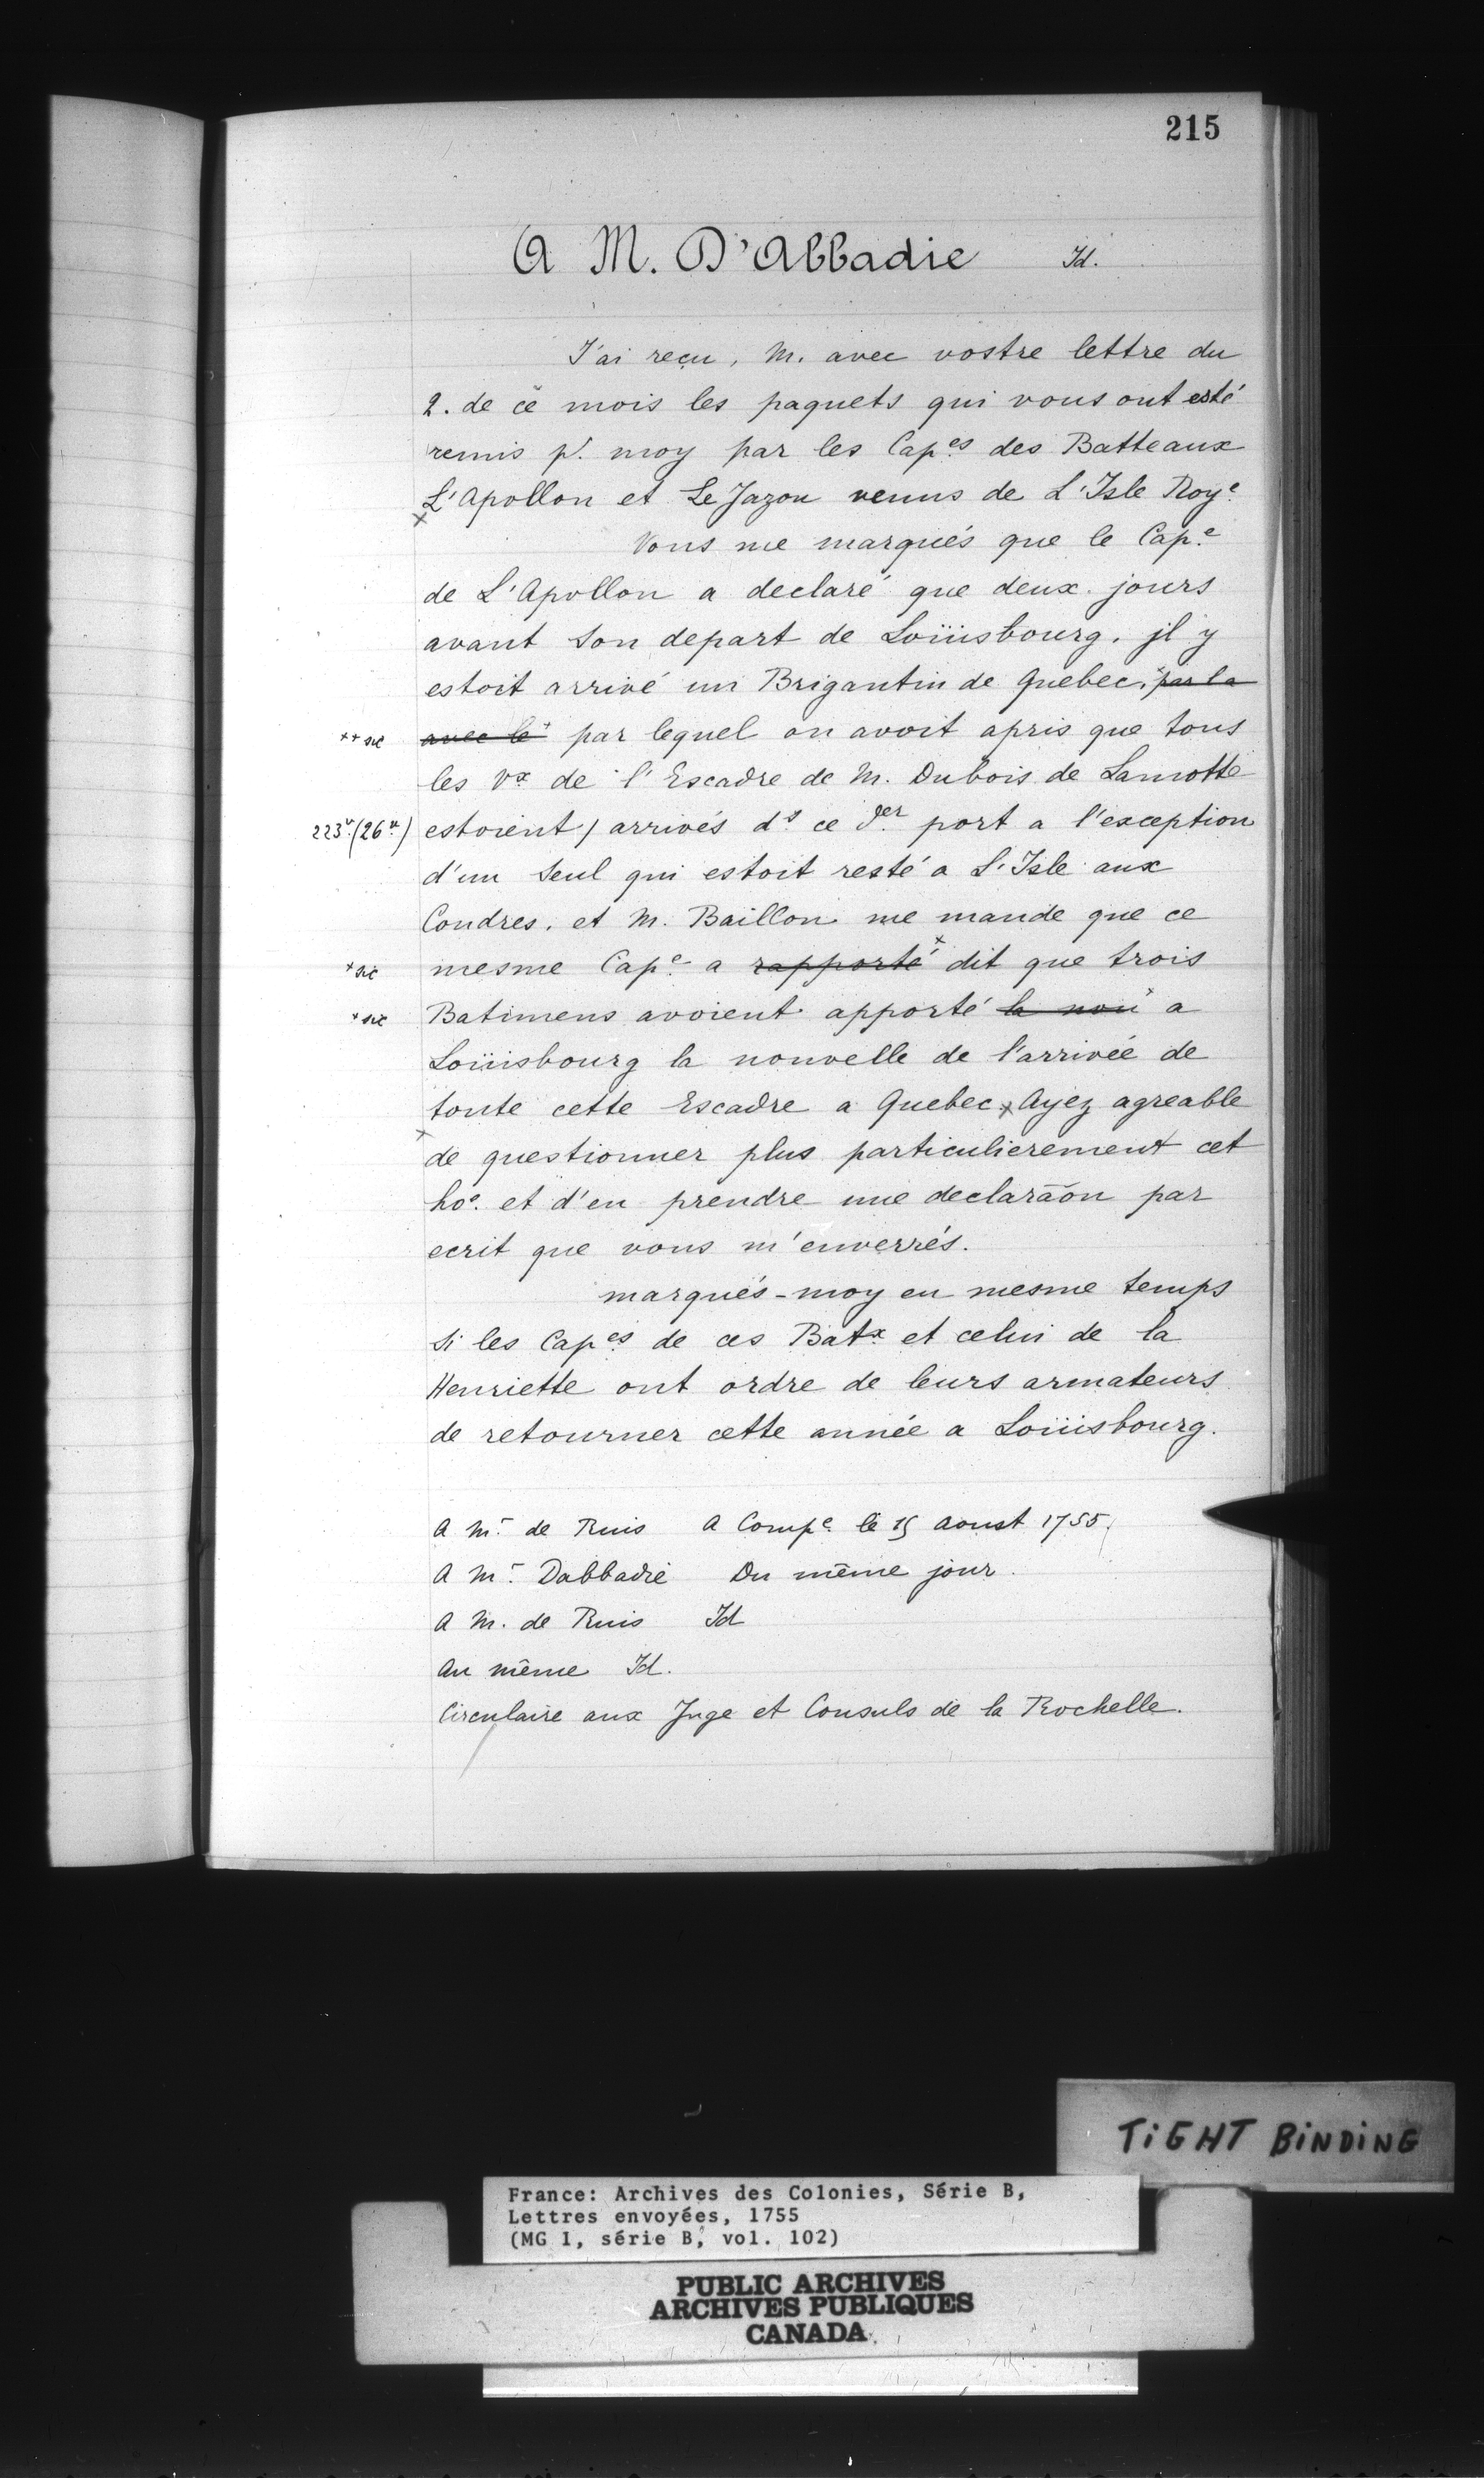 215
A M. D'Abbadie Id.
J'ai reçu, M. avec vostre lettre du
2. de cẽ mois les paquets qui vous ont esté
remis pʳ. moy par les Cap.es des Batteaux
L'Apollon et Le Jazon venus de L'Isle Roy.e
Vous me marqués que le Cap.e
de L'Apollon a declaré que deux jours
avant son depart de Loüisbourg, jl y
estoit arrivé un Brigantin de Quebec, ˣ ~~par la~~
++ sic ~~avec le~~ ⁺ par lequel on avoit apris que tous
les Vx de l'Escadre de M. Dubois de Lamotte
223ᵛ.(26ᵛ.) estoient / arrivés d.s ce d.er port a l'exception
d'un seul qui estoit resté a L'Isle aux
Coudres, et M. Baillon me mande que ce
+ sic mesme Cap.e a ~~rapporté~~ ˣ dit que trois
+ sic Batimens avoient apporté ~~la nou~~ ˣ a
Loüisbourg la nouvelle de l'arrivée de
toute cette Escadre a Quebec, x Ayez agreable
de questionner plus particulierement cet
ho.e et d'en prendre une declarãon par
ecrit que vous m'enverrés.
marqués-moy en mesme temps
si les Cap.es de ces Bat.x et celui de la
Henriette ont ordre de leurs armateurs
de retourner cette année a Loüisbourg.
A M.r de Ruis A Comp.e le 15 aoust 1755.
A M.r Dabbadie Du même jour.
A M. de Ruis Id
Au même Id.
Circulaire aux Juge et Consuls de la Rochelle.
TiGHT BiNDiNG
France: Archives des Colonies, Série B,
Lettres envoyées, 1755
(MG 1, série B, vol. 102)
PUBLIC ARCHIVES
ARCHIVES PUBLIQUES
CANADA